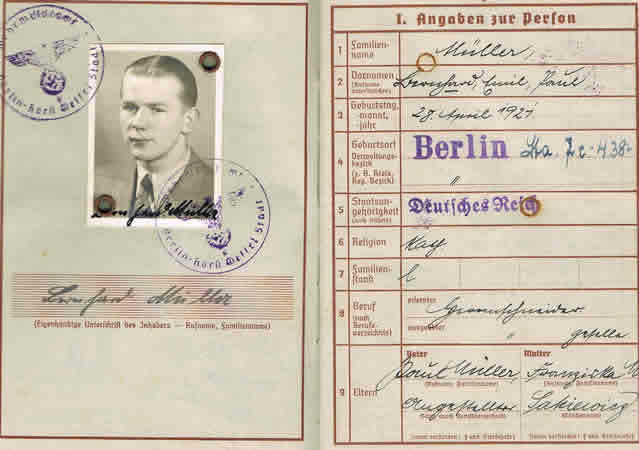 Wehrmeldeamt
Berlin-Horst Wessel Stadt
Bernhard Müller
Berlin-Horst Wessel Stadt
Bernhard Müller
(Eigenhändige Unterschrift des Inhabers — Rufname, Familienname)
I. Angaben zur Person
1 Familien-
name
Müller
2 Vornamen
(Rufname
unterstreichen)
Bernhard, Emil, Paul
3 Geburtstag,
-monat,
-jahr
28. April 1921
4 Geburtsort
Verwaltungs-
bezirk
(z. B. Kreis,
Reg. Bezirk)
Berlin
"
5 Staatsan-
gehörigkeit
(auch frühere)
Deutsches Reich
6 Religion
7 Familien-
stand
l
8 Beruf
(nach
Berufs-
verzeichnis)
erlernter
ausgeübter
"
geselle
9 Eltern
Vater
Paul Müller,
(Rufname, Familienname)
Angestellter
Mutter
Franziska M
(Rufname, Familienname)
Sakiewicz
(Mädchenname)